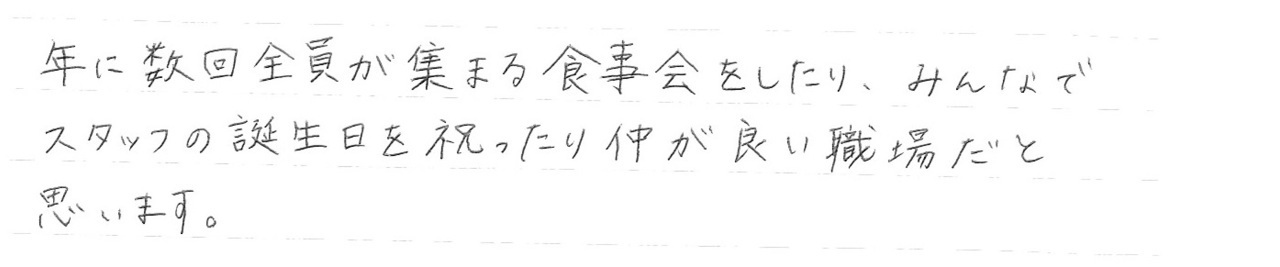 年に数回全員が集まる食事会をしたり、みんなで
スタッフの誕生日を祝ったり仲が良い職場だと
思います。